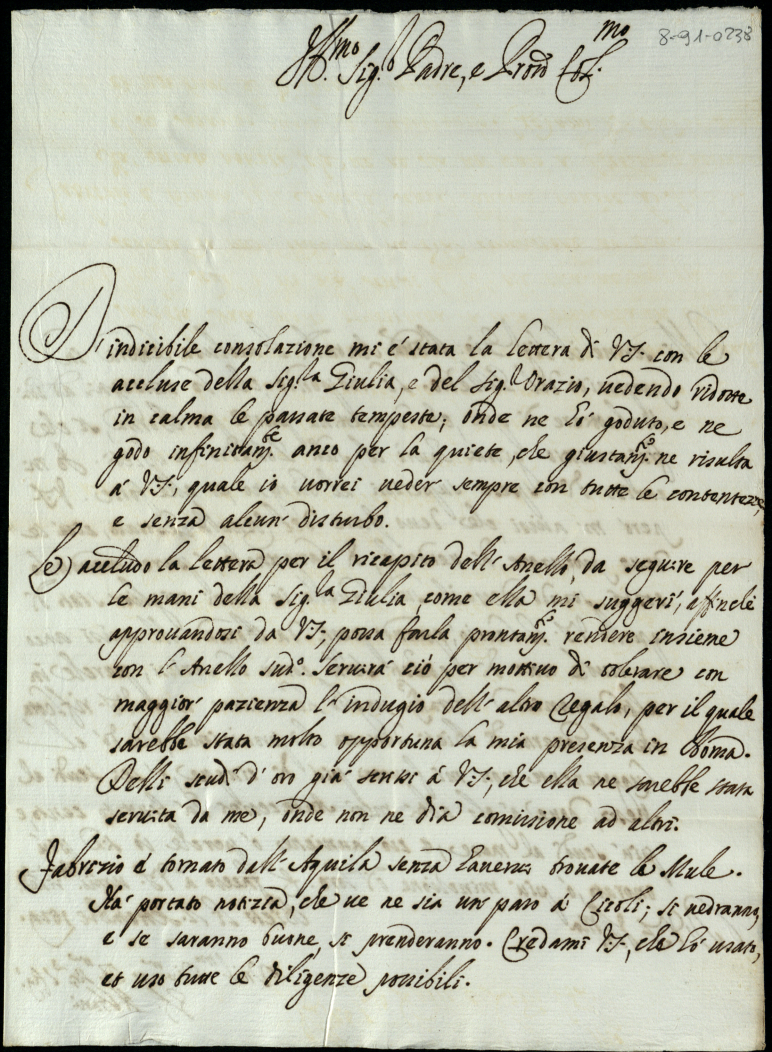 8-91-0238
Ill.mo Sig.r Padre, e Pron Col.mo
D'indicibile consolazione mi é stata la lettera di VS. con le
accluse della Sig.la Giulia, e del Sig.r Orazio, uedendo ridotte
in calma le passate tempeste; onde ne hó goduto, e ne
godo infinitam.te anco per la quiete, che giustam.te ne risulta
á VS., quale io uorrei ueder sempre con tutte le contentezze,
e senza alcun' disturbo.
Le accludo la lettera per il ricapito dell'Anello, da seguire per
le mani della Sig.la Giulia, come ella mi suggerí, affinche
approuandosi da VS., possa farla prontam.te rendere insieme
con l'Anello sud.o. Seruirá ció per mottiuo di tolerare con
maggior' pazienza l'indugio dell'altro Regalo, per il quale
sarebbe stata molto opportuna la mia presenza in Roma.
Delli scudi d'oro giá scrissi á VS., che ella ne sarebbe stata
seruita da me, onde non ne dia comissione ad altri.
Fabrizio é tornato dall'Aquila senza hauerui trouate le Mule.
Há portato notizia, che ue ne sia un' paro á Cicoli; si uedranno,
e se saranno buone, si prenderanno. Credami VS., che hó usato,
et uso tutte le diligenze possibili.